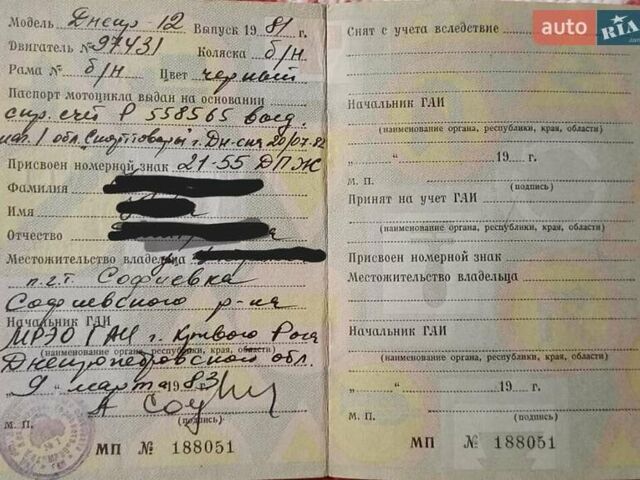 Модель Днепр-12 Выпуск 1981 г.
Двигатель № 97431 Коляска б/н
Рама № б/н Цвет черный
Паспорт мотоцикла выдан на основании
спр. счёт Р 558565 выд.
маг. 1 обл. Спорттовары г. Дн-ска 20/07-82
Присвоен номерной знак 21-55 ДПЖ
Фамилия
Имя
Отчество
Местожительство владельца
п.г.т. Софиевка
Софиевского р-на
Начальник ГАИ
МРЭО ГАИ г. Кривого Рога
(наименование органа, республики, края, области)
Днепропетровской обл.
„9" марта 1983 г.
М. П. (подпись)
МП № 188051
Снят с учета вследствие
Начальник ГАИ
(наименование органа, республики, края, области)
„ " 19 г.
М. П. (подпись)
Принят на учет ГАИ
(наименование органа, республики, края, области)
Присвоен номерной знак
Местожительство владельца
Начальник ГАИ
(наименование органа, республики, края, области)
„ " 19 г.
М. П. (подпись)
МП № 188051
auto RIA .com